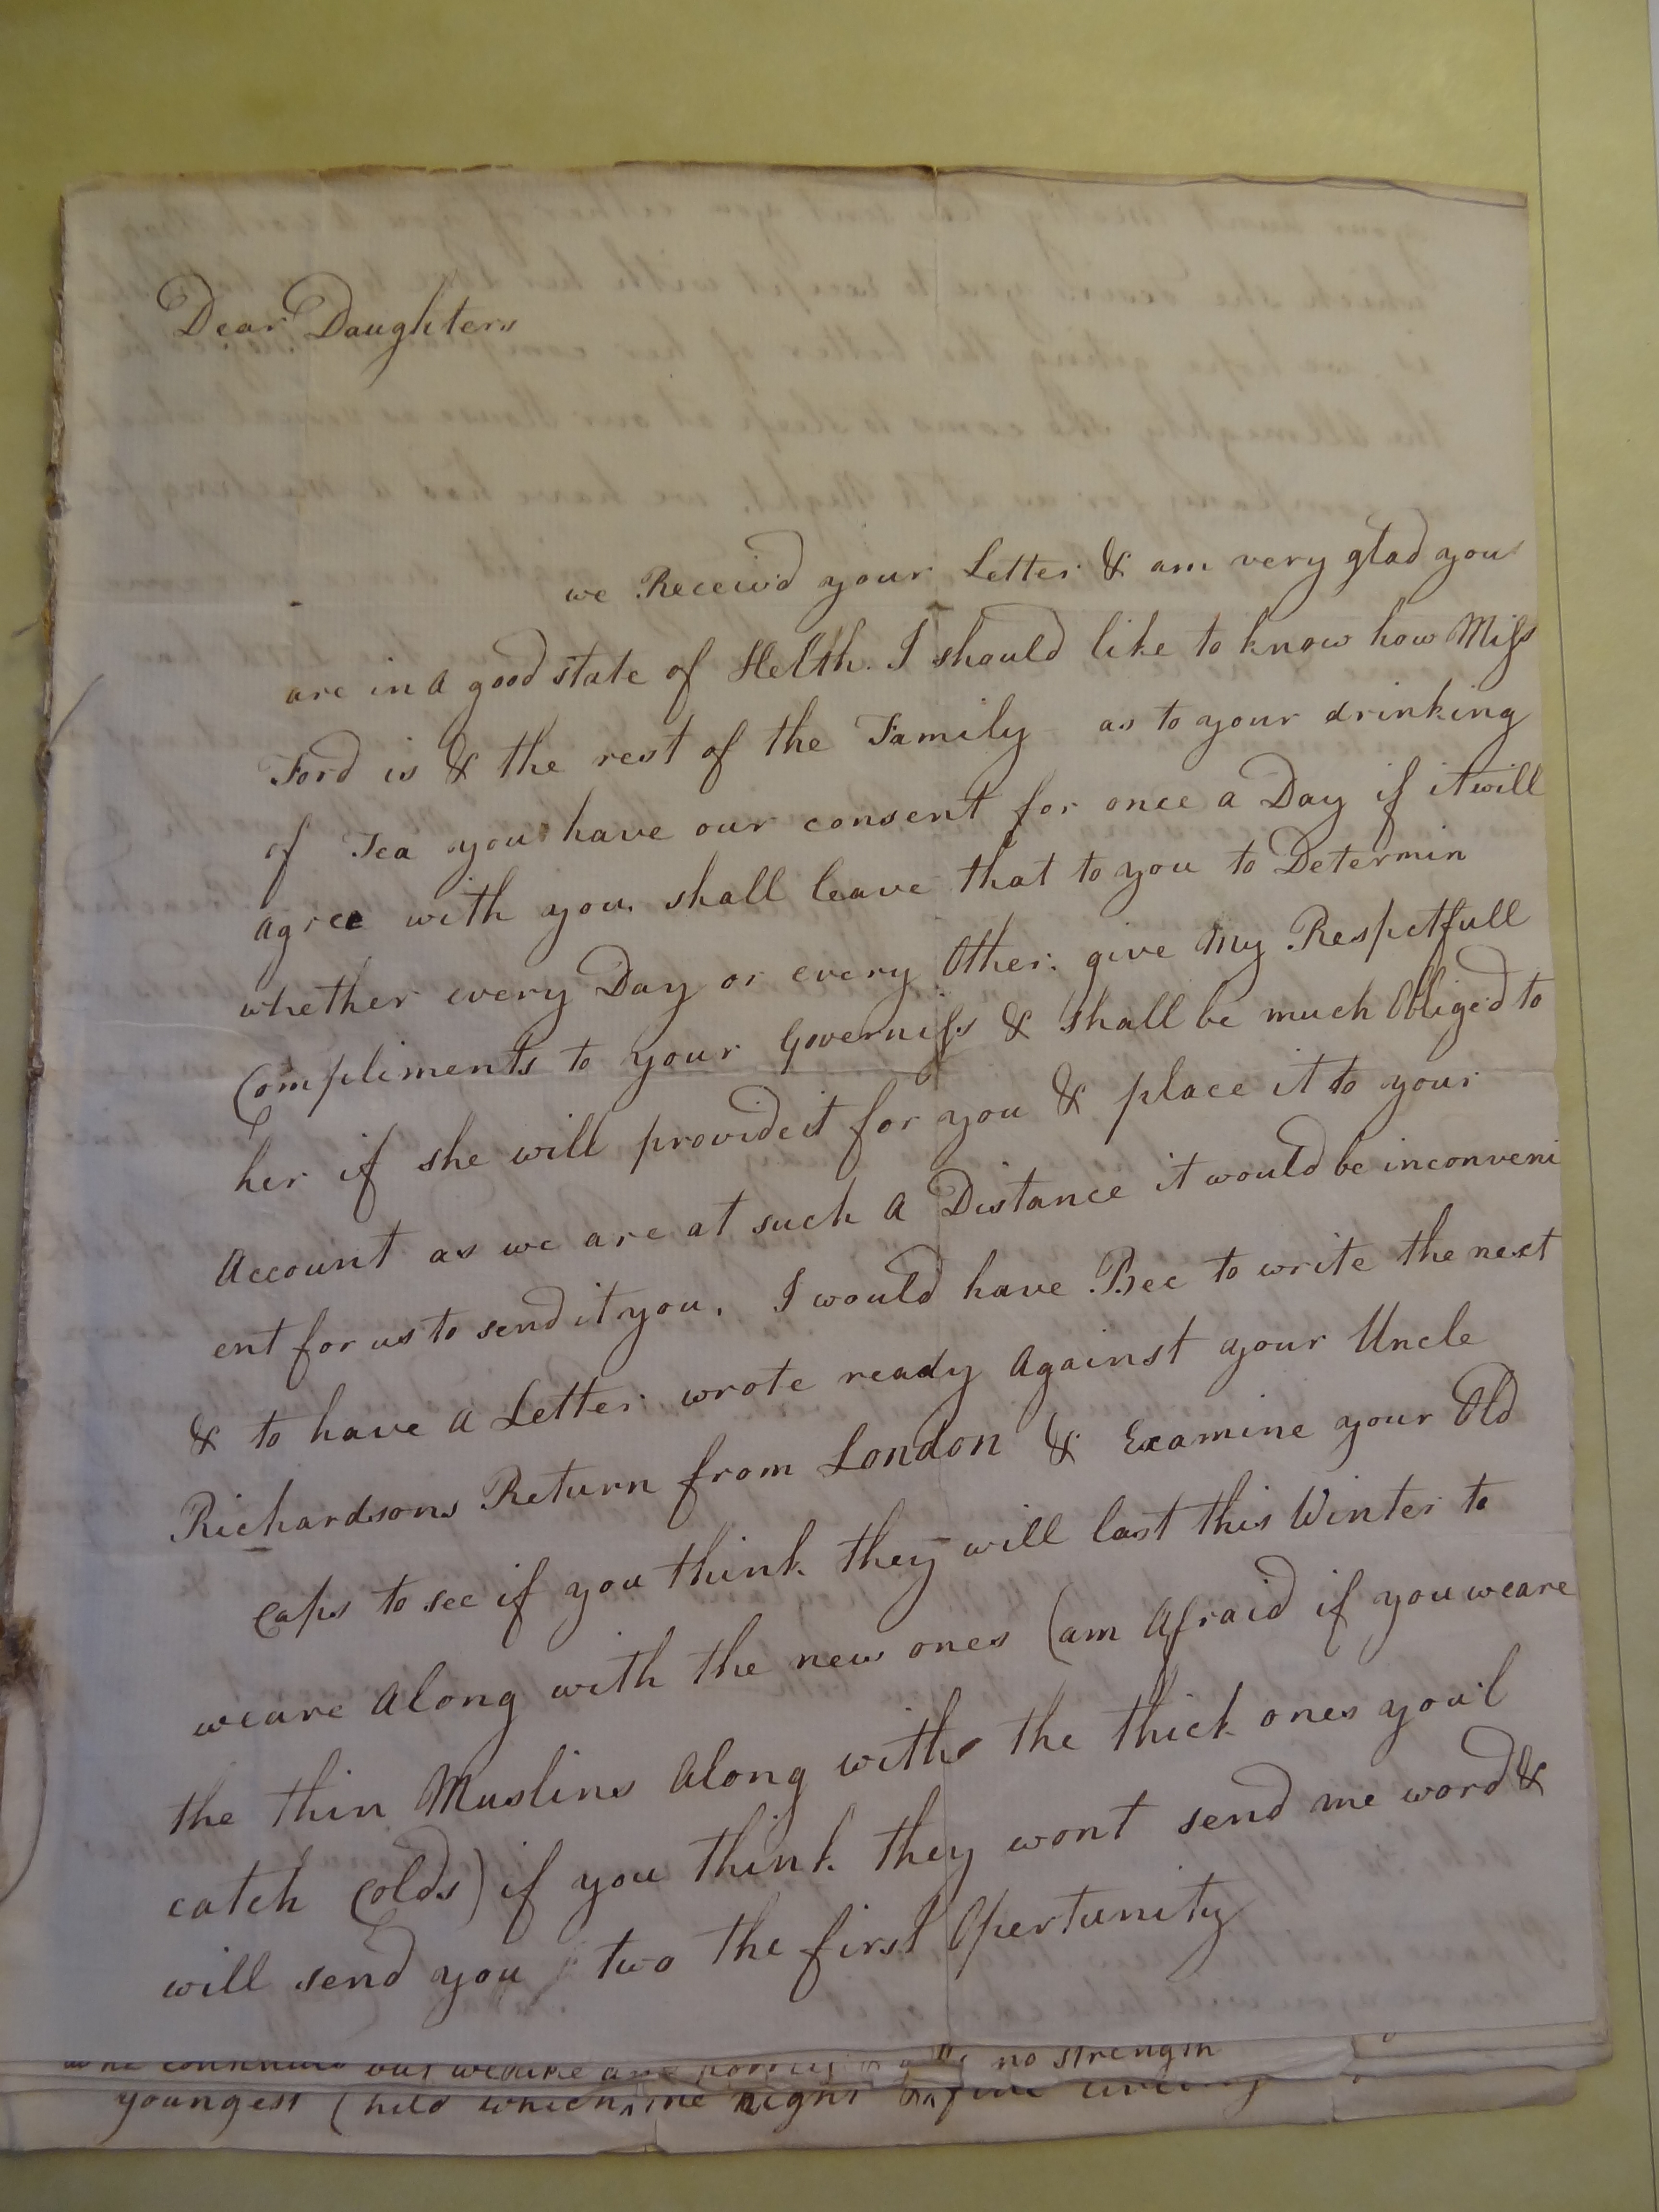 Dear Daughters
we Receiv'd your Letter & am very glad you
are in a good state of Helth. I should like to know how Miss
Ford is & the rest of the Family as to your drinking
of Tea you have our consent for once a Day if it will
agree with you. shall leave that to you to Determin
whether every Day or every Other. give my Respetfull
Compliments to your Governiss & shall be much Obliged to
her if she will provide it for you & place it to your
Account as we are at such a Distance it would be inconveni
ent for us to send it you. I would have Bec to write the next
& to have a Letter wrote ready against your Uncle
Richardsons Return from London & Examine your Old
Caps to see if you think they will last this Winter to
weare along with the new ones (am Afraid if you weare
the thin Muslins along with the thick ones you'l
catch Colds) if you think they wont send me word &
will send you two the first Opertunity
no strength
youngest Child which the night